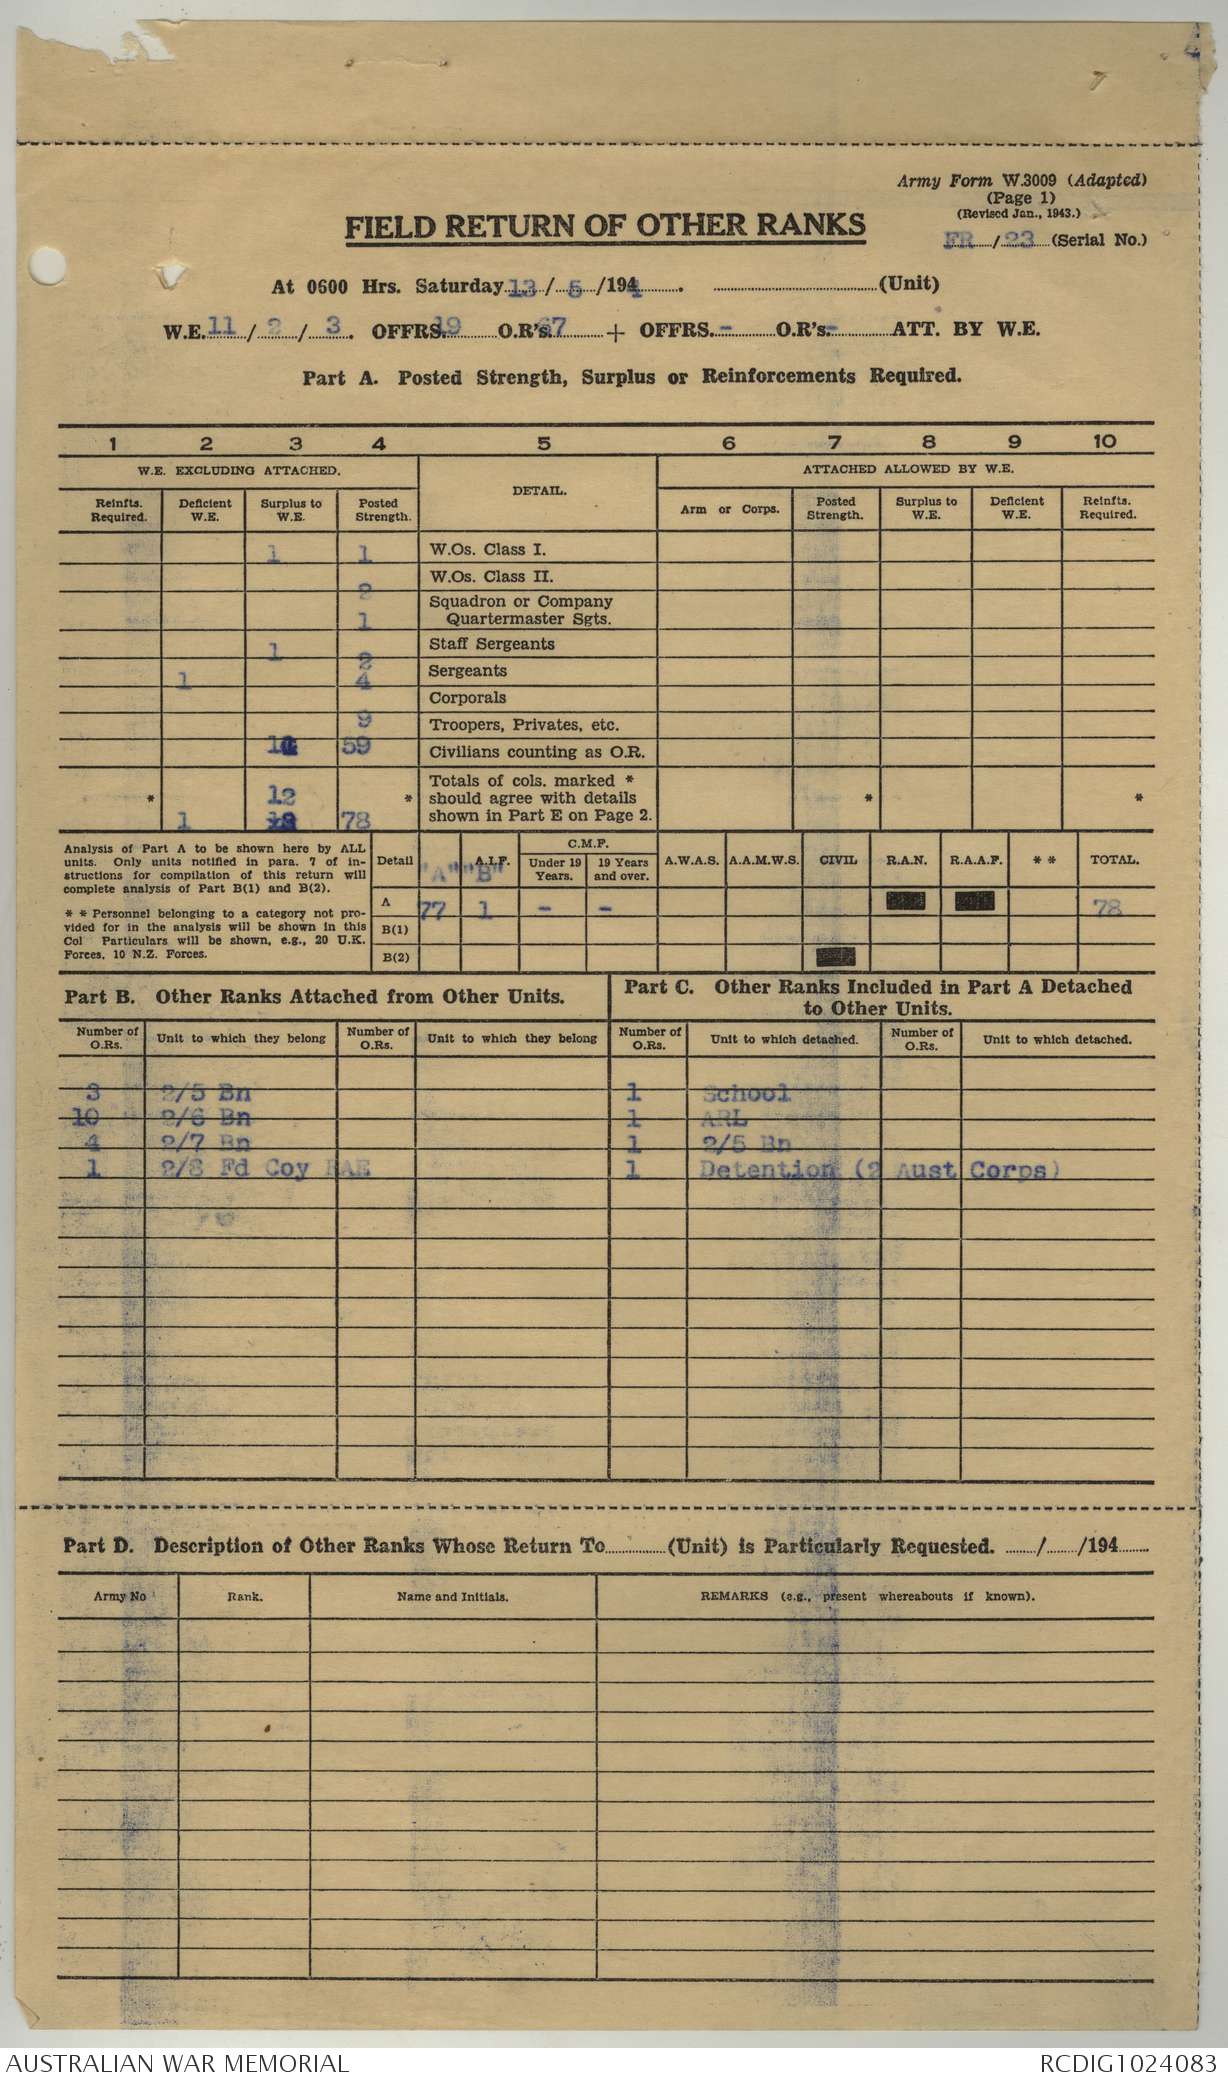 Army Form W.3009 (Adapted)
(Page 1)
(Revised Jan., 1943.)
FIELD RETURN OF OTHER RANKS
FR / 23 (Serial No.)
At 0600 Hrs. Saturday 13 / 5 /1944. (Unit)
W.E. 11 / 2 / 3. OFFRS. 19 O.R's. 67 + OFFRS. - O.R's. - ATT. BY W.E.
Part A. Posted Strength, Surplus or Reinforcements Required.
1 2 3 4 5 6 7 8 9 10
W.E. EXCLUDING ATTACHED. DETAIL. ATTACHED ALLOWED BY W.E.
Reinfts. Required. Deficient W.E. Surplus to W.E. Posted Strength. Arm or Corps. Posted Strength. Surplus to W.E. Deficient W.E. Reinfts. Required.
1 1 W.Os. Class I.
2 W.Os. Class II.
1 Squadron or Company
Quartermaster Sgts.
1 2 Staff Sergeants
1 4 Sergeants
9 Corporals
59 Troopers, Privates, etc.
Civilians counting as O.R.
Totals of cols. marked *
* 12 * should agree with details * *
1 78 shown in Part E on Page 2.
Analysis of Part A to be shown here by ALL
units. Only units notified in para. 7 of in-
structions for compilation of this return will
complete analysis of Part B(1) and B(2).
* * Personnel belonging to a category not pro-
vided for in the analysis will be shown in this
Col Particulars will be shown, e.g., 20 U.K.
Forces, 10 N.Z. Forces.
Detail A.I.F. C.M.F. A.W.A.S. A.A.M.W.S. CIVIL R.A.N. R.A.A.F. * * TOTAL.
"A" "B" Under 19 Years. 19 Years and over.
A 77 1 - - 78
B(1)
B(2)
Part B. Other Ranks Attached from Other Units.
Part C. Other Ranks Included in Part A Detached
to Other Units.
Number of O.Rs. Unit to which they belong Number of O.Rs. Unit to which they belong Number of O.Rs. Unit to which detached. Number of O.Rs. Unit to which detached.
3 2/5 Bn 1 School
10 2/6 Bn 1 ARL
4 2/7 Bn 1 2/5 Bn
1 2/8 Fd Coy RAE 1 Detention (2 Aust Corps)
Part D. Description of Other Ranks Whose Return To (Unit) is Particularly Requested. / /194
Army No Rank. Name and Initials. REMARKS (e.g., present whereabouts if known).
AUSTRALIAN WAR MEMORIAL RCDIG1024083